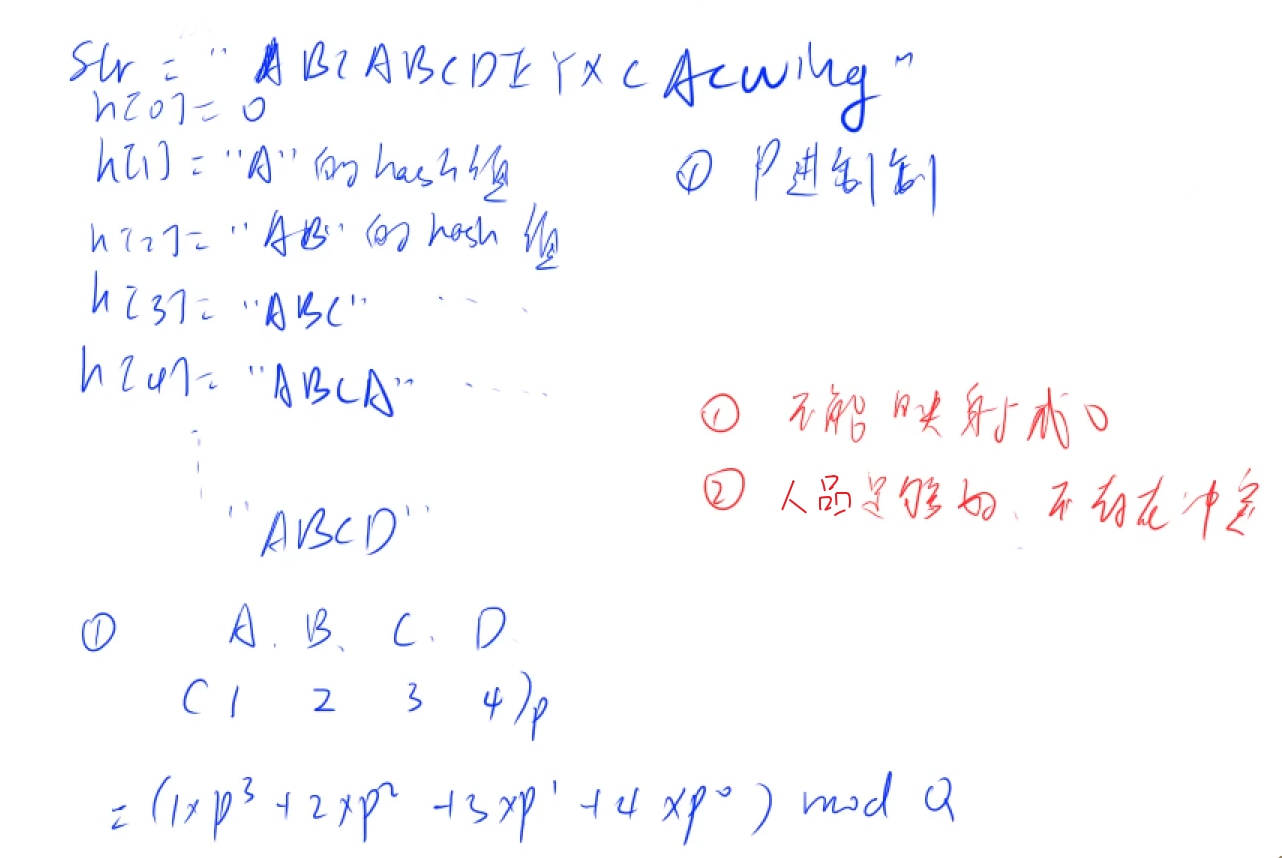 Str = "ABCABCDEYXCAcwing"
h[0] = 0
h[1] = "A" 的 hash 值
① P进制制
h[2] = "AB" 的 hash 值
h[3] = "ABC" ....
h[4] = "ABCA" ....
① 不能映射成0
② 人品足够好、不存在冲突
"ABCD"
① A. B、 C. D
( 1 2 3 4 )p
= (1×p³ + 2×p² + 3×p¹ + 4×p⁰) mod Q